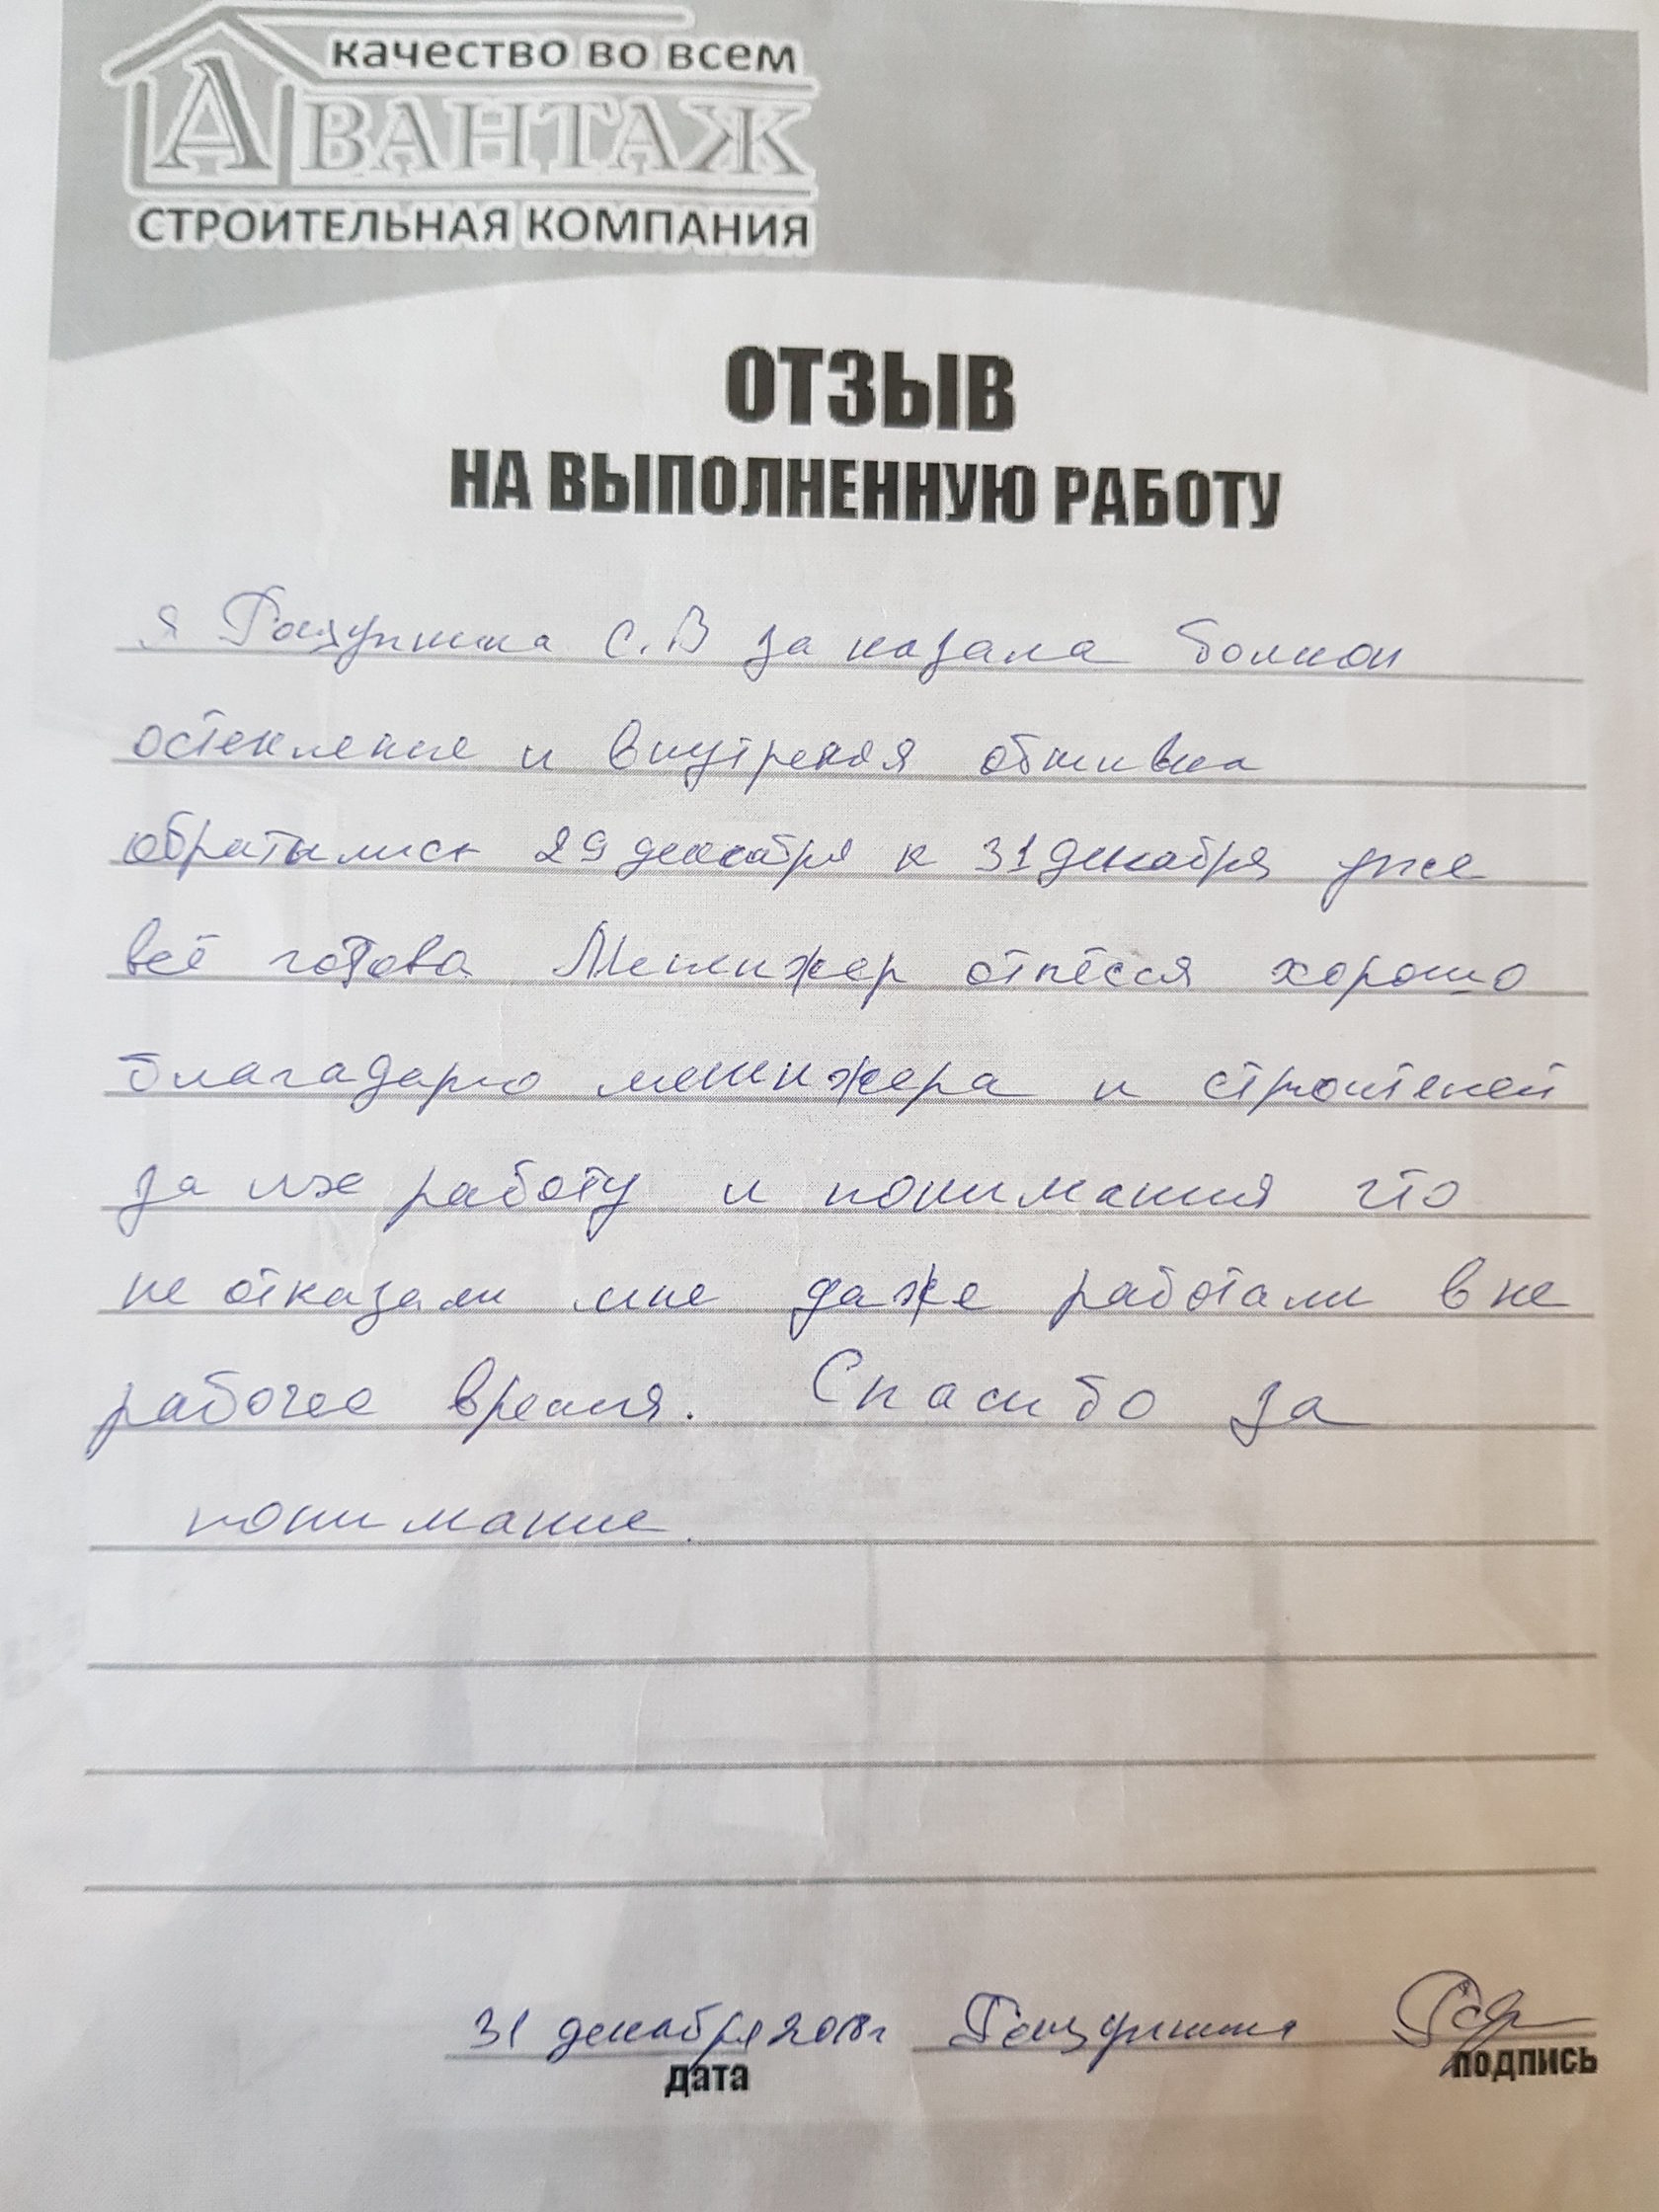 качество во всем
АВАНТАЖ
СТРОИТЕЛЬНАЯ КОМПАНИЯ
ОТЗЫВ
НА ВЫПОЛНЕННУЮ РАБОТУ
я С.В заказала болкон
остекление и внутреняя обшивка
обратились 29 декабря к 31 декабря уже
всё готова Мененжер отнёсся хорошо
благадарю мененжера и строителей
за их работу и понимания что
не отказали мне даже работали вне
рабочее время. Спасибо за
понимание.
31 декабря 2018г
дата
подпись